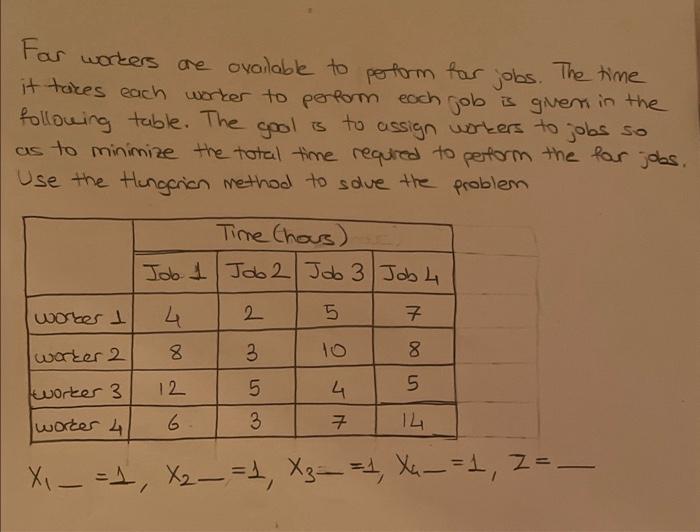 Far workers are available to perform far jobs. The time
it takes each worker to perform each job is given in the
following table. The goal is to assign workers to jobs so
as to minimize the total time required to perform the far jobs.
Use the Hungarian method to solve the problem
Time (hours)
Job 1 Job 2 Job 3 Job 4
worker 1 4 2 5 7
worker 2 8 3 10 8
worker 3 12 5 4 5
worker 4 6 3 7 14
X1_ =1, X2_ =1, X3_ =1, X4_ =1, Z = __